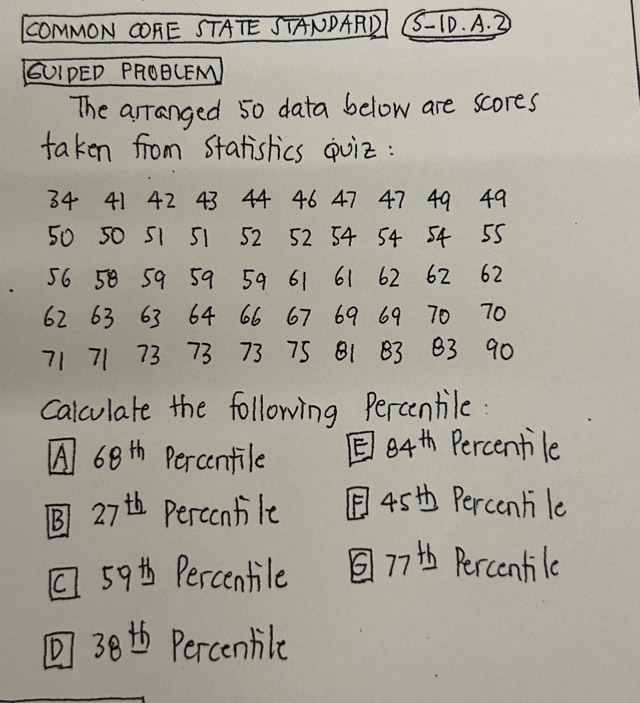 COMMON CORE STATE STANDARD S-ID.A.2
GUIDED PROBLEM
The arranged 50 data below are scores
taken from Statistics Quiz :
34 41 42 43 44 46 47 47 49 49
50 50 51 51 52 52 54 54 54 55
56 58 59 59 59 61 61 62 62 62
62 63 63 64 66 67 69 69 70 70
71 71 73 73 73 75 81 83 83 90
Calculate the following Percentile :
A 68th Percentile
E 84th Percentile
B 27th Percentile
F 45th Percentile
C 59th Percentile
G 77th Percentile
D 38th Percentile